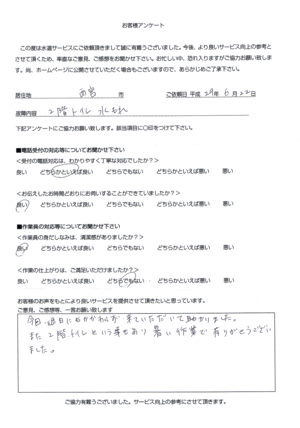 お客様アンケート
この度は水道サービスにご依頼頂きまして誠に有難うございました。今後、より良いサービス向上の参考と
させて頂くため、率直なご意見、ご感想をお聞かせ下さい。お忙しい中、恐れ入りますがご協力お願い致しま
す。尚、ホームページに公開させていただく場合もございますので、あらかじめご了承下さい。
居住地 西宮 市 ご依頼日 平成 29年 6月 22日
故障内容 2階トイレ 水もれ
下記アンケートにご協力お願い致します。該当項目に〇印をつけて下さい。
■電話受付の対応等についてお聞かせ下さい
<受付の電話対応は、わかりやすく丁寧な対応でしたか?>
良い どちらかといえば良い どちらでもない どちらかといえば悪い 悪い
<お伝えしたお時間どおりにお伺いすることができていましたか?>
良い どちらかといえば良い どちらでもない どちらかといえば悪い 悪い
■作業員の対応等についてお聞かせ下さい
<作業員の身だしなみは、清潔感がありましたか?>
良い どちらかといえば良い どちらでもない どちらかといえば悪い 悪い
<作業の仕上がりは、ご満足いただけましたか?>
良い どちらかといえば良い どちらでもない どちらかといえば悪い 悪い
お客様のお声をもとにより良いサービスを提供させて頂きたいと思っています。
ご意見、ご感想等、一言お願い致します
今回、週日にもかかわらず、来ていただいて助かりました。
また2階トイレという事もあり 暑い作業で有りがとうござい
ました。
ご協力有難うございました。サービス向上の参考にさせて頂きます。